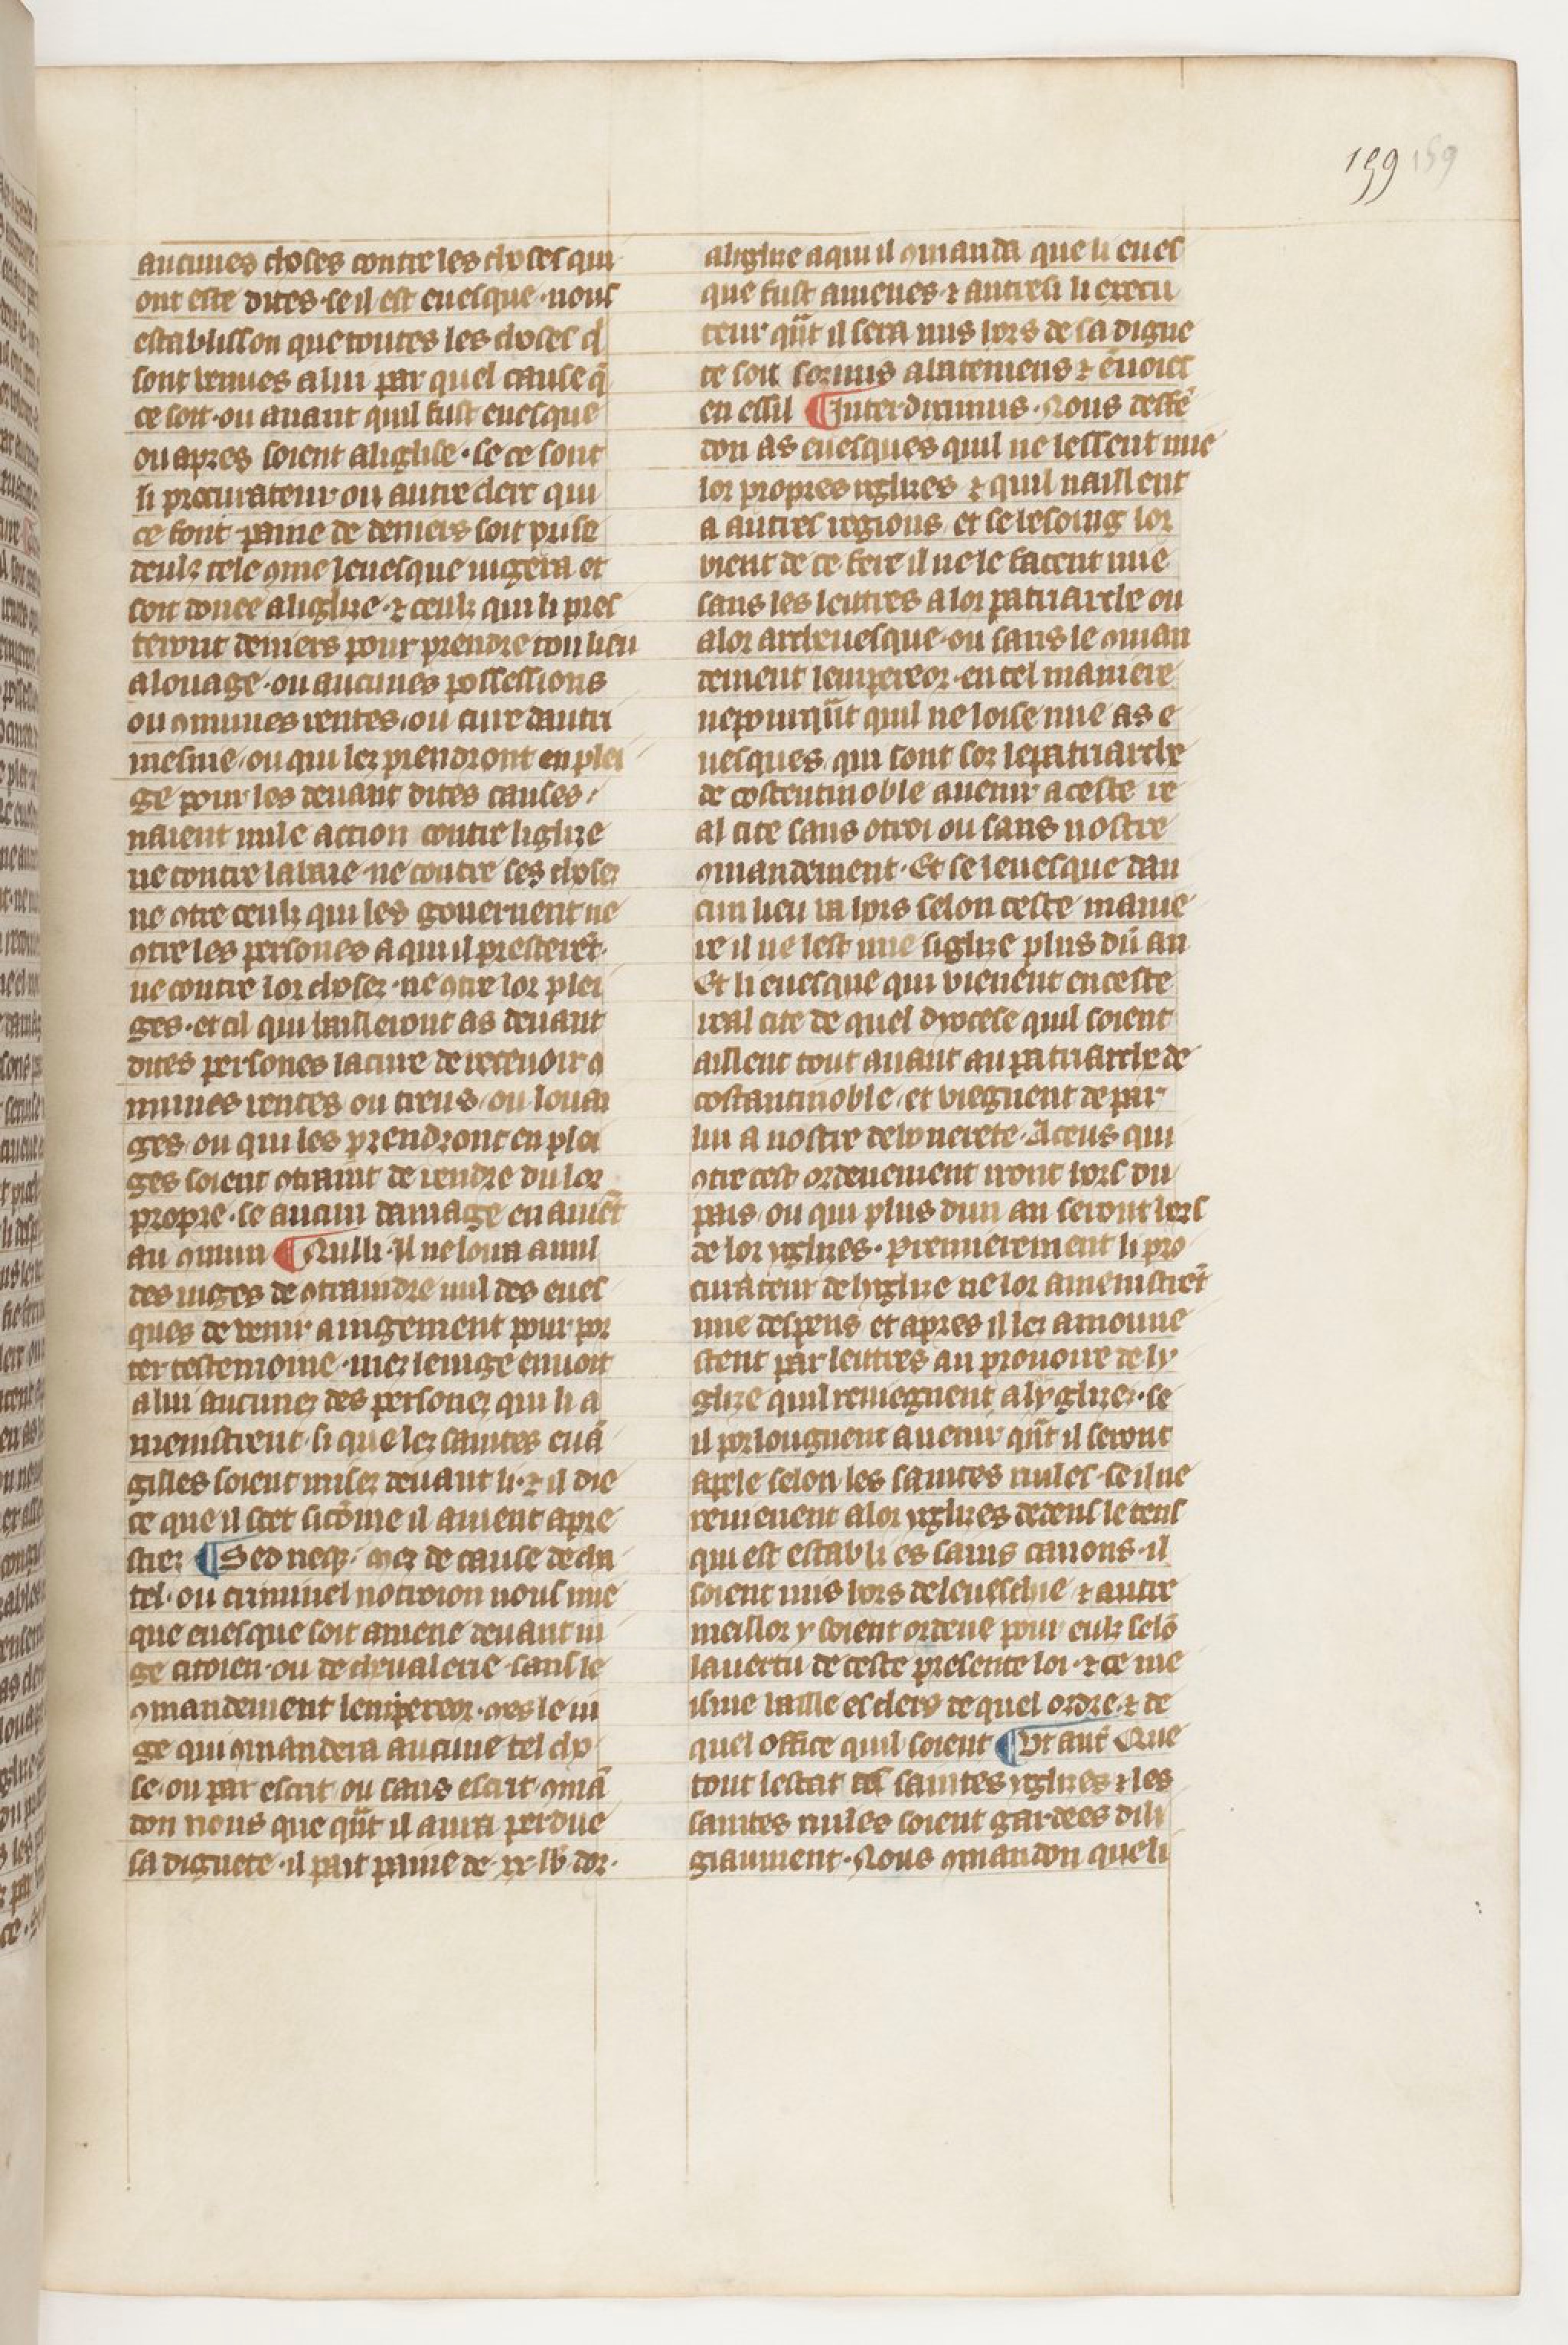 159 159
aucunes choses contre les choses qui
ont este dites · se il est euesque · nous
establisson que toutes les choses q̃
sont uenues a lui par quel cause q̃
ce soit · ou auant quil fust euesque
ou apres soient a liglise · se ce sont
li procurateur ou autre clerc qui
ce font paine de deniers soit prise
deulz tele ꝯme leuesque iugera et
soit donee a liglize · ⁊ ceulz qui li pres
teront deniers pour prendre ton lieu
a louage · ou aucunes possessions
ou ꝯmunes rentes · ou cure dautri
mesme · ou qui lez prendront en plei
ge pour les deuant dites causes ·
naient nule action contre liglize
ne contre labaie · ne contre ses choses
ne ꝯtre ceulz qui les gouernent ne
ꝯtre les persones a qui il presterẽt ·
ne contre lor chosez · ne ꝯtre lor plei
ges · et cil qui bailleront as deuant
dites persones la cure de receuoir ꝯ
munes rentes ou treus · ou louai
ges · ou qui les prendront en plei
ges soient ꝯtraint de rendre du lor
propre · se aucun damage en auiẽt
au ꝯmun ¶ Nulli · Il ne loira a nul
des iuges de ꝯtraindre nul des eues
ques de uenir a iugement pour por
ter testemoine · mez le iuge enuoit
a lui aucunez des personez qui li a
menistrent · si que lez saintes euã
gilles soient misez deuant li · ⁊ il die
ce que il scet sicõme il auient a pre
strez ¶ Sed neqꝫ · mez de cause de cha
tel · ou criminel notroion nous mie
que euesque soit amene deuant iu
ge citoien · ou de cheualerie · sans le
ꝯmandement lempereor · mes le iu
ge qui ꝯmandera aucune tel cho
se · ou par escrit ou sans escrit · ꝯmã
don nous que qũt il aura perdue
sa dignete · il pait paine de · xx · lb̃ dor ·
a liglize a qui il ꝯmanda que li eues
que fust amenes · ⁊ autresi li execu
teur qũt il sera mis hors de sa digne
te soit sormis a batemens ⁊ enuoies
en essil ¶ Interdicimus · Nous deffẽ
don as euesques quil ne lessent mie
lor propres yglizes ⁊ quil naillent
a autres regions et se besoing lor
uient de ce fere il ne le facent mie
sans les leittres a lor patriarche ou
a lor archeuesque · ou sans le ꝯman
dement lempereor · en tel maniere
nepourqũt quil ne loise mie as e
uesques qui sont soz le patriarche
de costentinoble auenir a ceste re
al cite sans otroi ou sans nostre
ꝯmandement · Et se leuesque dau
cun lieu ua hors selon ceste manie
re il ne lest mie sigliꝫe plus dũ an
Et li euesque qui uienent en ceste
real cite de quel dyocese quil soient
aillent tout auant au patriarche de
costantinoble · et uiegnent de par
lui a nostre debonerete · A ceus qui
ꝯtre cest ordenement iront hors du
pais · ou qui plus dun an seront hors
de lor yglizes · premierement li pro
curateur de lyglize ne lor amenistrẽt
mie despens et apres il lez amoune
stent par leittres au prouoire de ly
glize quil reuiegnent a lyglize · se
il porlonguent a uenir qũt il seront
apele selon les saintes rulles · se il ne
reuienent a lor yglizes dedens le tens
qui est establi es sains canons · il
soient mis hors de leueschie ⁊ autre
meillor y soient ordene pour eulz selõ
la uertu de ceste presente loi · ⁊ ce me
isme uaille es clers de quel ordre ⁊ de
quel office quil soient ¶ Vt aut̃ Que
tout lestat des saintes yglizes ⁊ les
saintes rulles soient gardees dili
giaument · Nous ꝯmandon que li